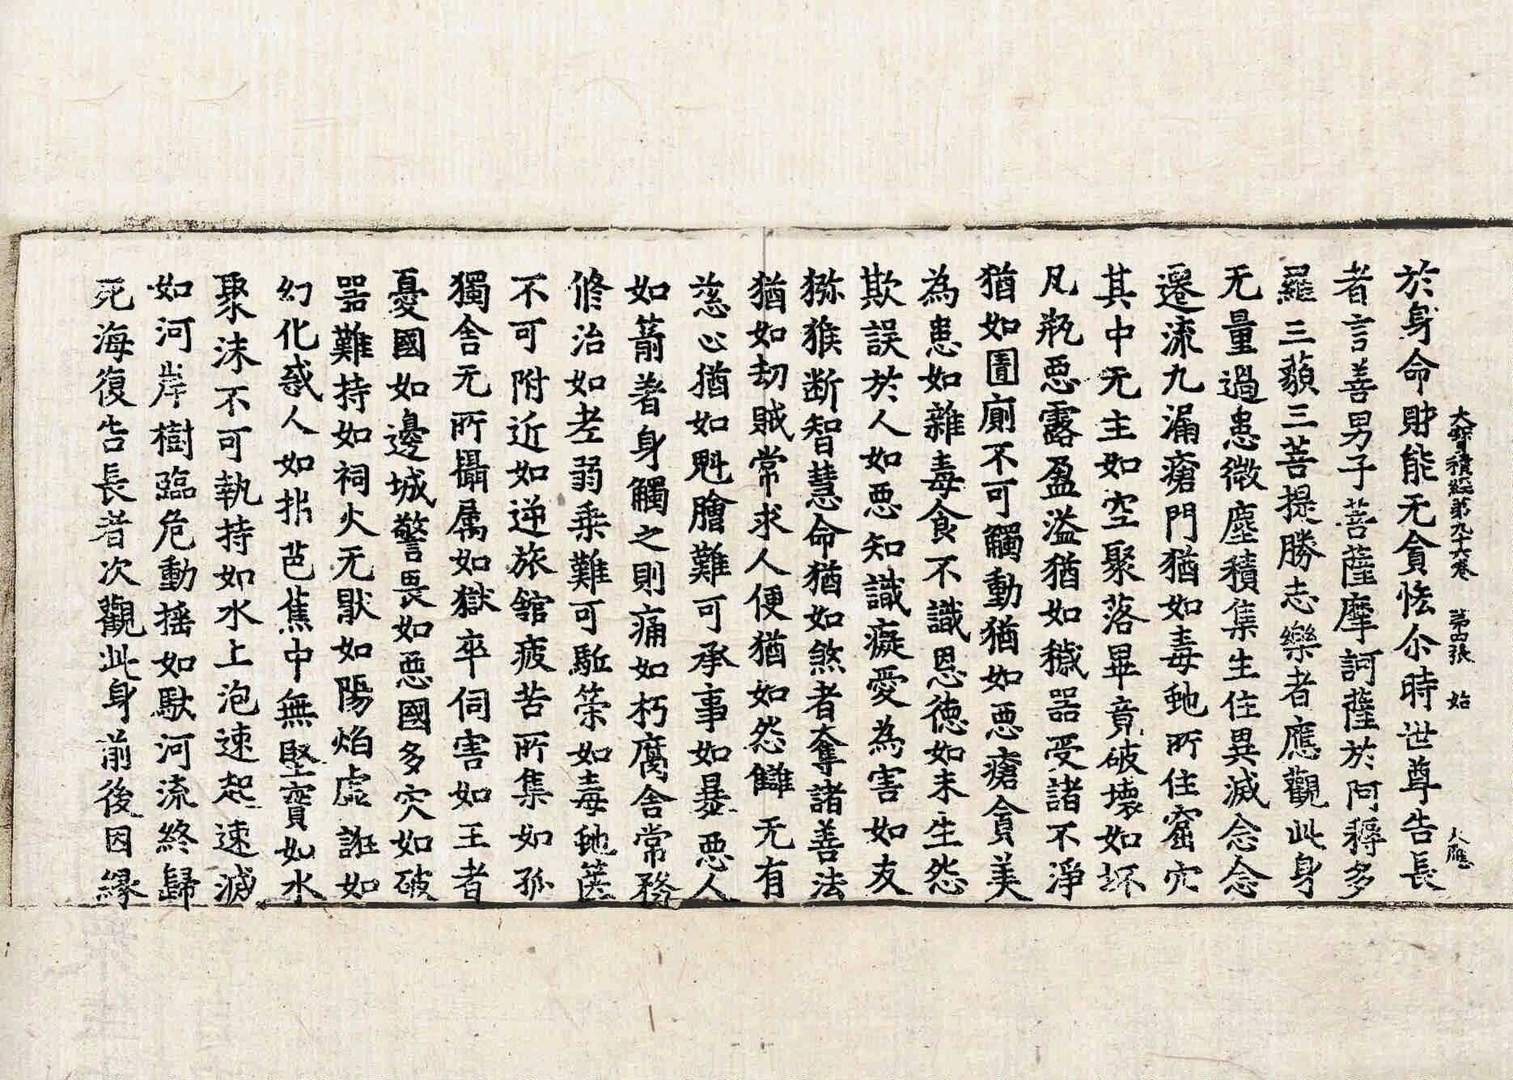 大寶積經第九十六卷 第四張 始
大應
於身命財能无貪恡尒時世尊告長
者言善男子菩薩摩訶薩於阿耨多
羅三藐三菩提勝志樂者應觀此身
无量過患微塵積集生住異滅念念
遷流九漏瘡門猶如毒虵所住窟穴
其中无主如空聚落畢竟破壞如坏
凡瓶惡露盈溢猶如穢器受諸不淨
猶如圊廁不可觸動猶如惡瘡貪美
為患如雜毒食不識恩徳如未生怨
欺誤於人如惡知識癡愛為害如友
獼猴断智慧命猶如煞者奪諸善法
猶如劫賊常求人便猶如怨讎无有
慈心猶如魁膾難可承事如暴惡人
如箭著身觸之則痛如朽腐舍常務
修治如老弱乘難可駈策如毒虵篋
不可附近如逆旅舘疲苦所集如孤
獨舍无所攝属如獄卒伺害如王者
憂國如邊城警畏如惡國多灾如破
器難持如祠火无猒如陽焰虛誑如
幻化惑人如㧣芭蕉中無堅實如水
聚沫不可執持如水上泡速起速滅
如河岸樹臨危動摇如駃河流終歸
死海復告長者次觀此身前後因縁